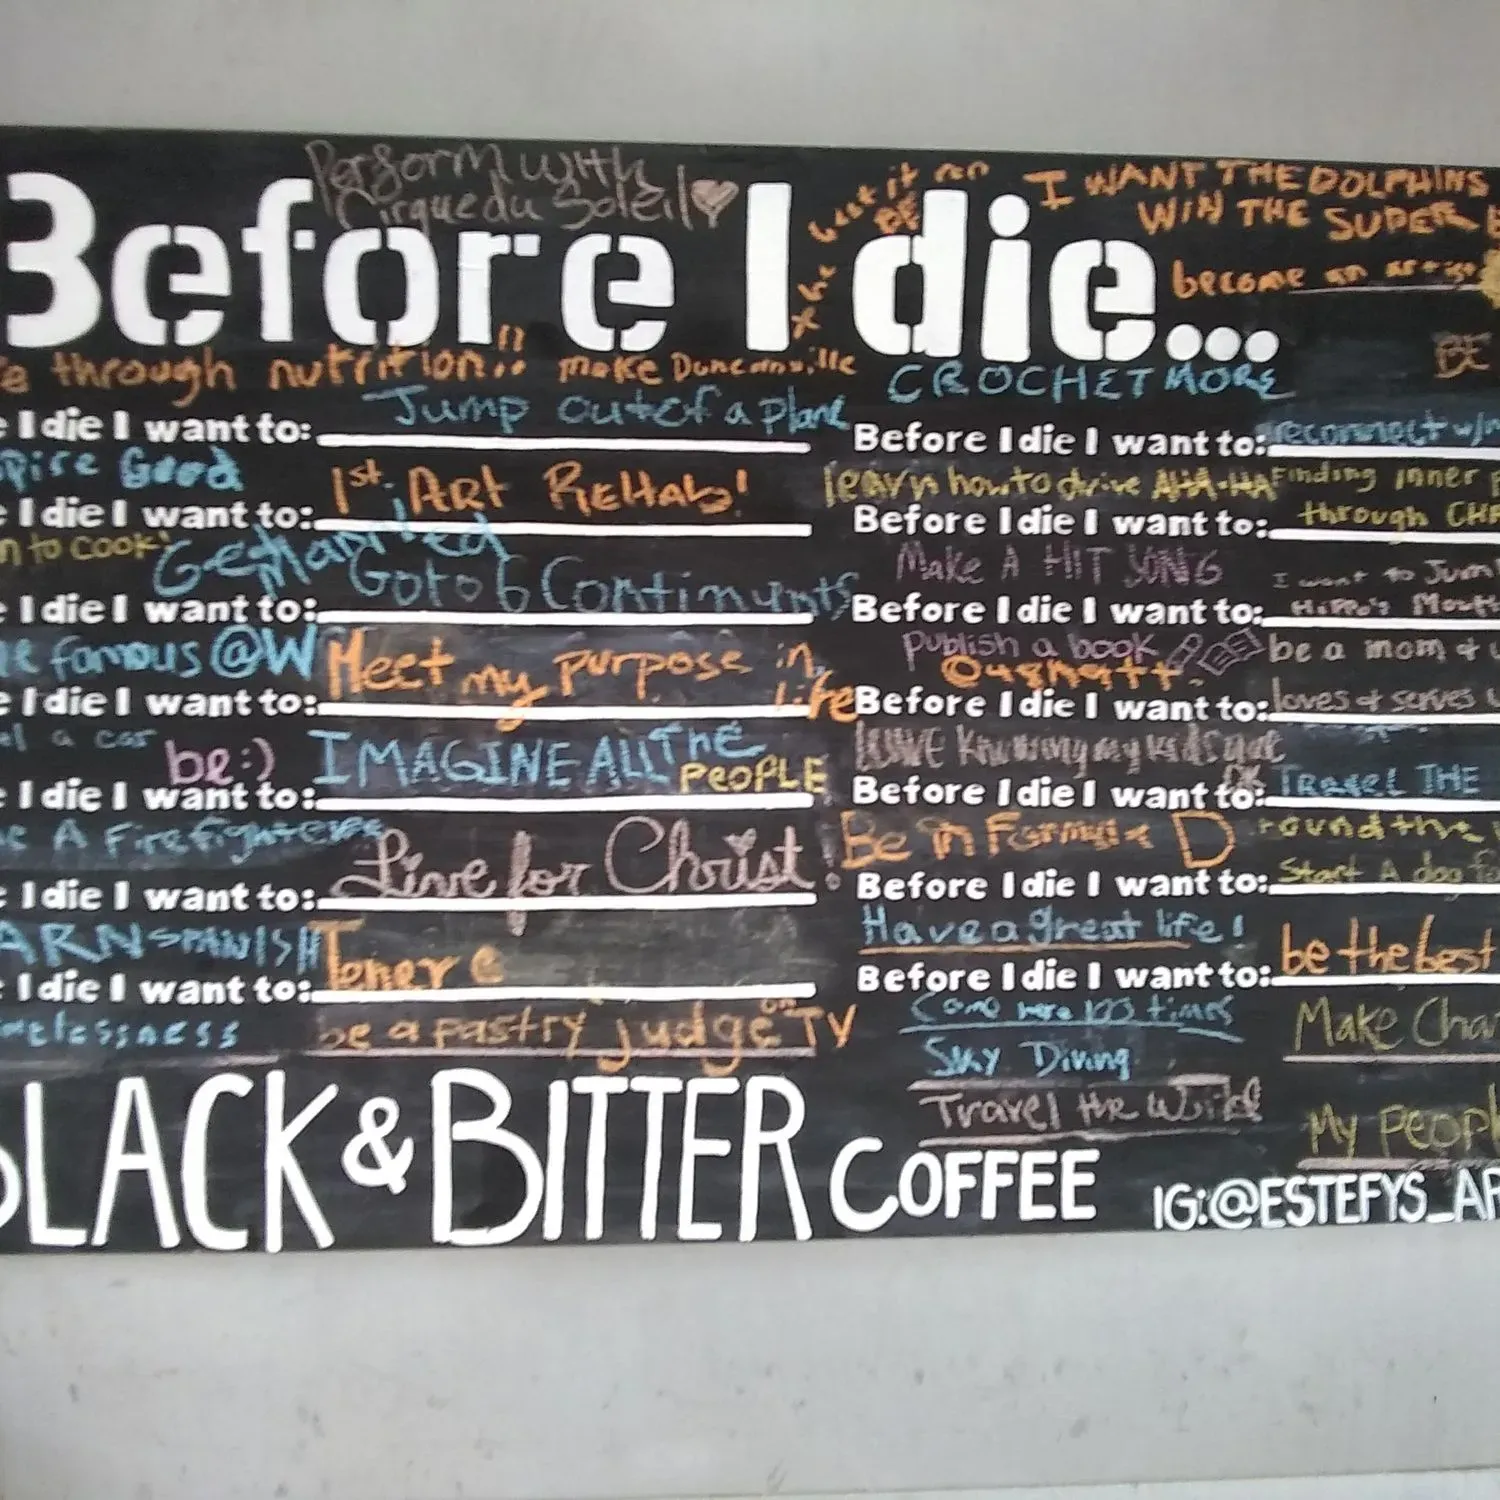 Perform with
Cirque du Soleil
I WANT THE DOLPHINS
WIN THE SUPER
Before I die...
become an artist
BE
through nutrition!!
make Duncanville
CROCHET MORE
Jump out of a plane
I die I want to:
Before I die I want to:
reconnect w/
Good
1st. ART REHAB!
learn how to drive AHA-HA
Finding inner
I die I want to:
Before I die I want to:
through
to cook
Get Married
Go to 6 Continunts
Make A HIT SONG
I want to Jum
I die I want to:
Before I die I want to:
Hippo's Mouth
famous @W
Meet my purpose in
life
publish a book
be a mom &
I die I want to:
Before I die I want to:
loves & serves
a car
be:)
IMAGINE ALL THE
PEOPLE
knowing my kids
I die I want to:
Before I die I want to:
TRAVEL THE
A Firefighter
Live for Christ!
Be in Formula D
round the
I die I want to:
Before I die I want to:
Start A dog
SPANISH
Have a great life!
be the best
I die I want to:
Before I die I want to:
be a pastry judge on TV
Come here 100 times
Make
Sky Diving
Travel the World
My
BLACK & BITTER COFFEE
IG:@ESTEFYS_AR